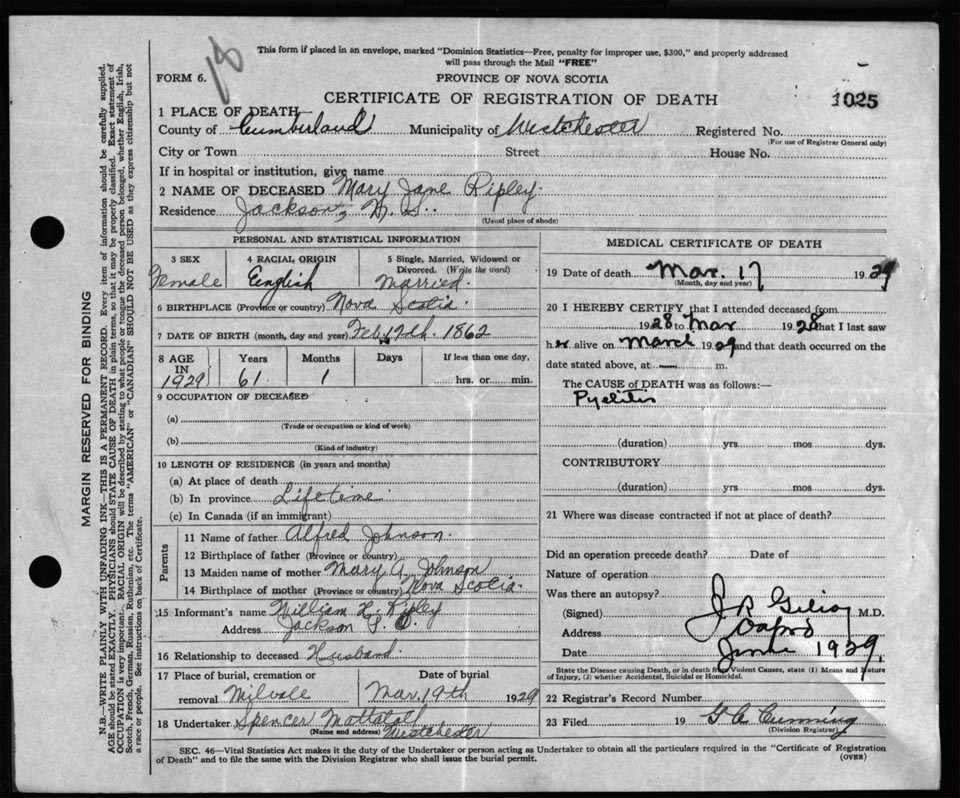 18
This form if placed in an envelope, marked "Dominion Statistics—Free, penalty for improper use, $300," and properly addressed
will pass through the Mail "FREE"
FORM 6. PROVINCE OF NOVA SCOTIA
CERTIFICATE OF REGISTRATION OF DEATH 1025
1 PLACE OF DEATH
County of Cumberland Municipality of Westchester Registered No.
(For use of Registrar General only)
City or Town Street House No.
If in hospital or institution, give name
2 NAME OF DECEASED Mary Jane Ripley
Residence Jackson, N. S.
(Usual place of abode)
PERSONAL AND STATISTICAL INFORMATION
3 SEX 4 RACIAL ORIGIN 5 Single, Married, Widowed or
Divorced. (Write the word)
Female English Married.
6 BIRTHPLACE (Province or country) Nova Scotia
7 DATE OF BIRTH (month, day and year) Feb. 1862
8 AGE Years Months Days If less than one day,
IN
1929 61 1 hrs. or min.
9 OCCUPATION OF DECEASED
(a)
(Trade or occupation or kind of work)
(b)
(Kind of industry)
10 LENGTH OF RESIDENCE (in years and months)
(a) At place of death
(b) In province Lifetime
(c) In Canada (if an immigrant)
Parents
11 Name of father Alfred Johnson.
12 Birthplace of father (Province or country)
13 Maiden name of mother Mary A. Johnson
14 Birthplace of mother (Province or country) Nova Scotia
15 Informant's name William H. Ripley
Address Jackson
16 Relationship to deceased Husband.
17 Place of burial, cremation or Date of burial
removal Milvale Mar. 19th 1929
18 Undertaker Spencer Mattatall
(Name and address) Westchester
MEDICAL CERTIFICATE OF DEATH
19 Date of death Mar. 17 1929
(Month, day and year)
20 I HEREBY CERTIFY that I attended deceased from
1928 to Mar 1928 that I last saw
her alive on March 1929 and that death occurred on the
date stated above, at — m.
The CAUSE OF DEATH was as follows:—
Pyelitis
(duration) yrs mos dys.
CONTRIBUTORY
(duration) yrs mos dys.
21 Where was disease contracted if not at place of death?
Did an operation precede death? Date of
Nature of operation
Was there an autopsy?
(Signed) J R M.D.
Address
Date June 1929
State the Disease causing Death, or in death from Violent Causes, state (1) Means and Nature
of Injury, (2) whether Accidental, Suicidal or Homicidal.
22 Registrar's Record Number
23 Filed 19 G A Cumming
(Division Registrar)
SEC. 46—Vital Statistics Act makes it the duty of the Undertaker or person acting as Undertaker to obtain all the particulars required in the "Certificate of Registration
of Death" and to file the same with the Division Registrar who shall issue the burial permit. (OVER)
MARGIN RESERVED FOR BINDING
N.B.—WRITE PLAINLY WITH UNFADING INK—THIS IS A PERMANENT RECORD. Every item of information should be carefully supplied.
AGE should be stated EXACTLY. PHYSICIANS should STATE CAUSE OF DEATH in plain terms, so that it may be properly classified. Exact statement of
OCCUPATION is very important. RACIAL ORIGIN will be described by stating to what people or tongue the deceased person belonged, whether English, Irish,
Scotch, French, German, Russian, Ruthenian, etc. The terms "AMERICAN" or "CANADIAN" SHOULD NOT BE USED as they express citizenship but not
a race or people. See instructions on back of Certificate.